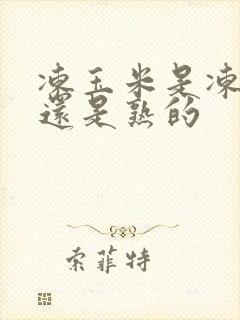 凍玉米是凍
還是熟的
索菲特